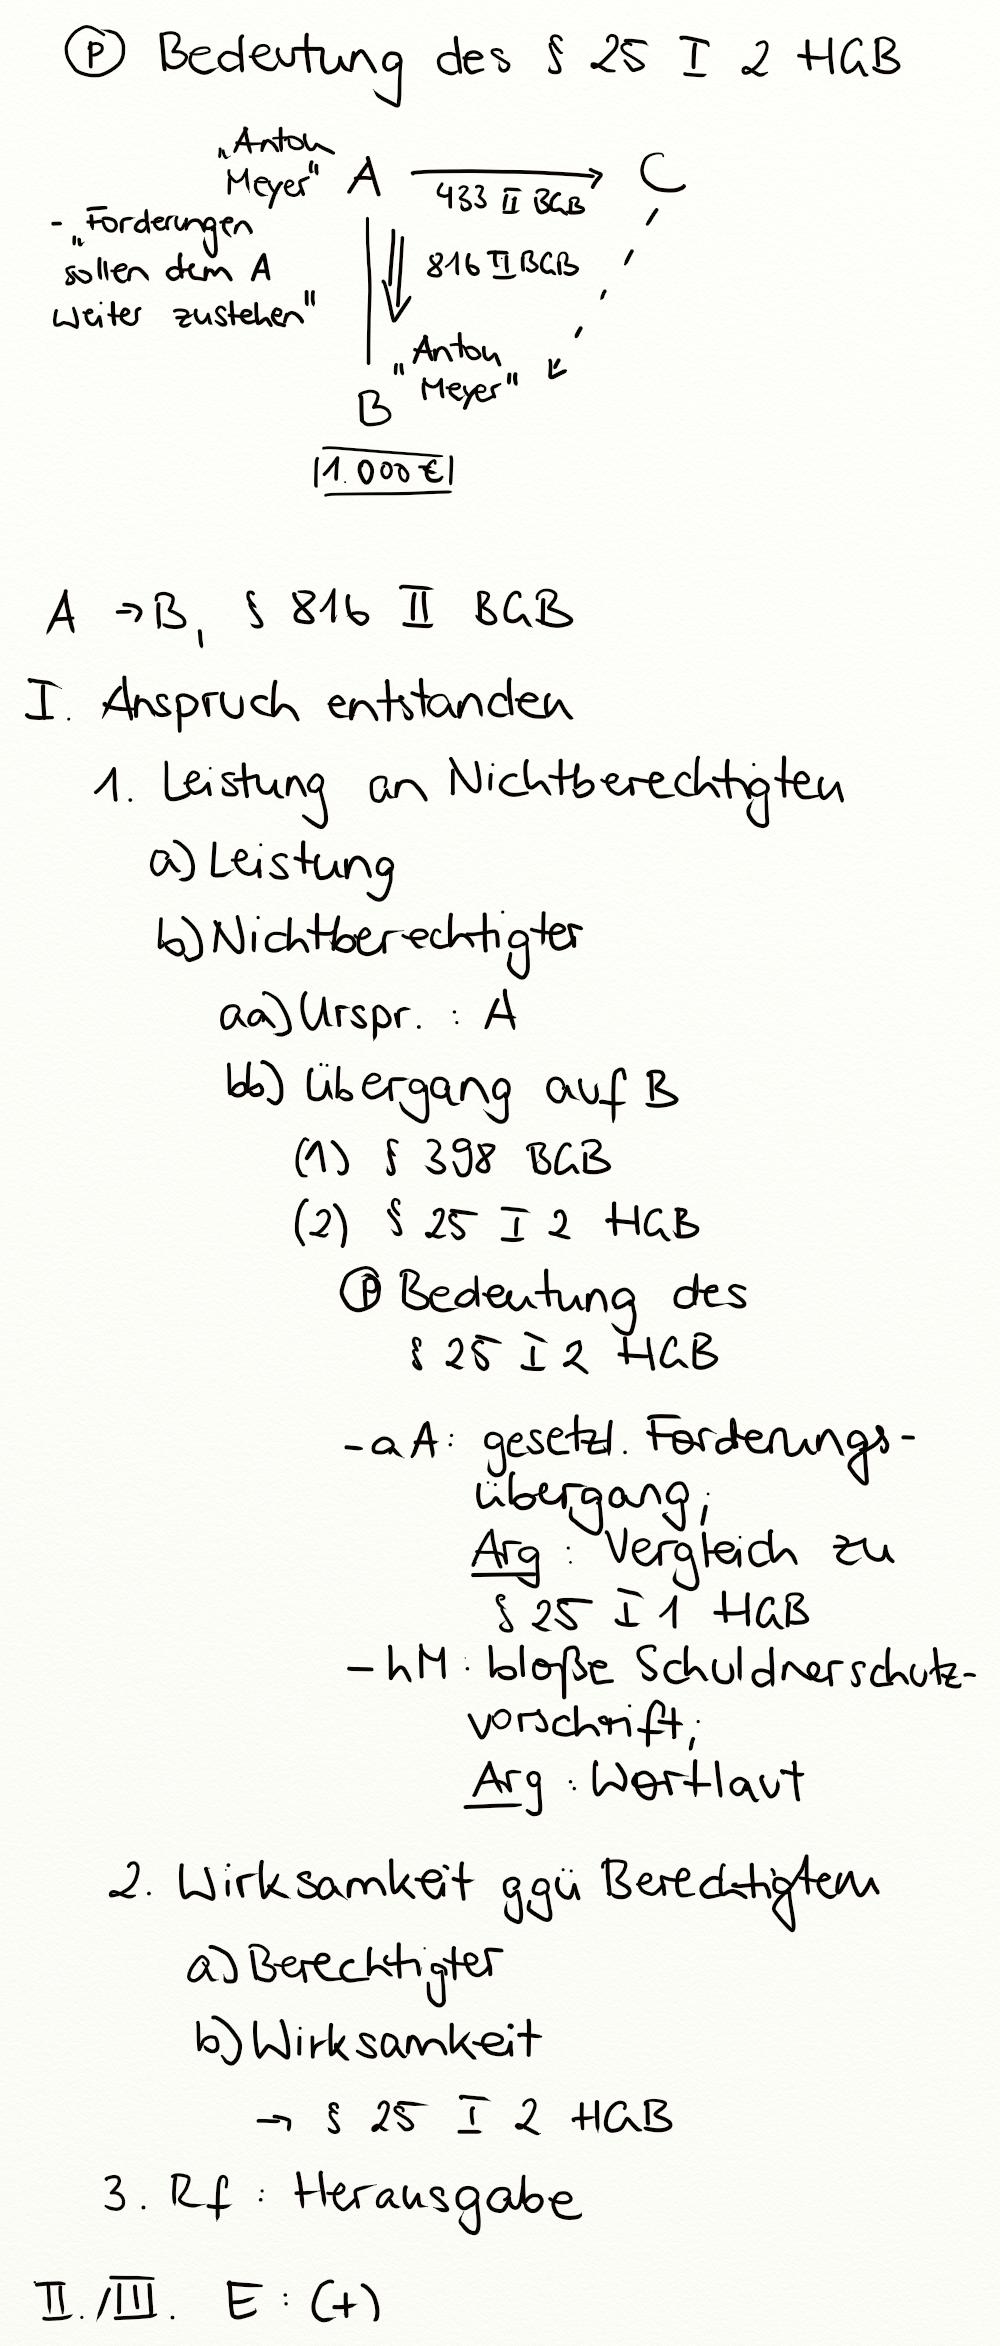 Ⓟ Bedeutung des § 25 I 2 HGB
„Anton
Meyer" A → C
433 II BGB
- „Forderungen
sollen dem A
weiter zustehen"
816 II BGB
"Anton
Meyer"
B
|1.000 €|
A → B, § 816 II BGB
I. Anspruch entstanden
1. Leistung an Nichtberechtigten
a) Leistung
b) Nichtberechtigter
aa) Urspr. : A
bb) Übergang auf B
(1) § 398 BGB
(2) § 25 I 2 HGB
Ⓟ Bedeutung des
§ 25 I 2 HGB
- aA: gesetzl. Forderungs-
übergang;
Arg : Vergleich zu
§ 25 I 1 HGB
- hM : bloße Schuldnerschutz-
vorschrift;
Arg : Wortlaut
2. Wirksamkeit ggü Berechtigtem
a) Berechtigter
b) Wirksamkeit
→ § 25 I 2 HGB
3. Rf : Herausgabe
II./III. E : (+)